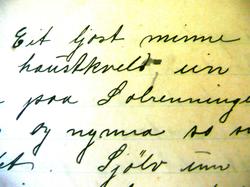 Eit ljost minne
haustkveld un
paa Solrenningen
og nynna so so
Sjölv unn